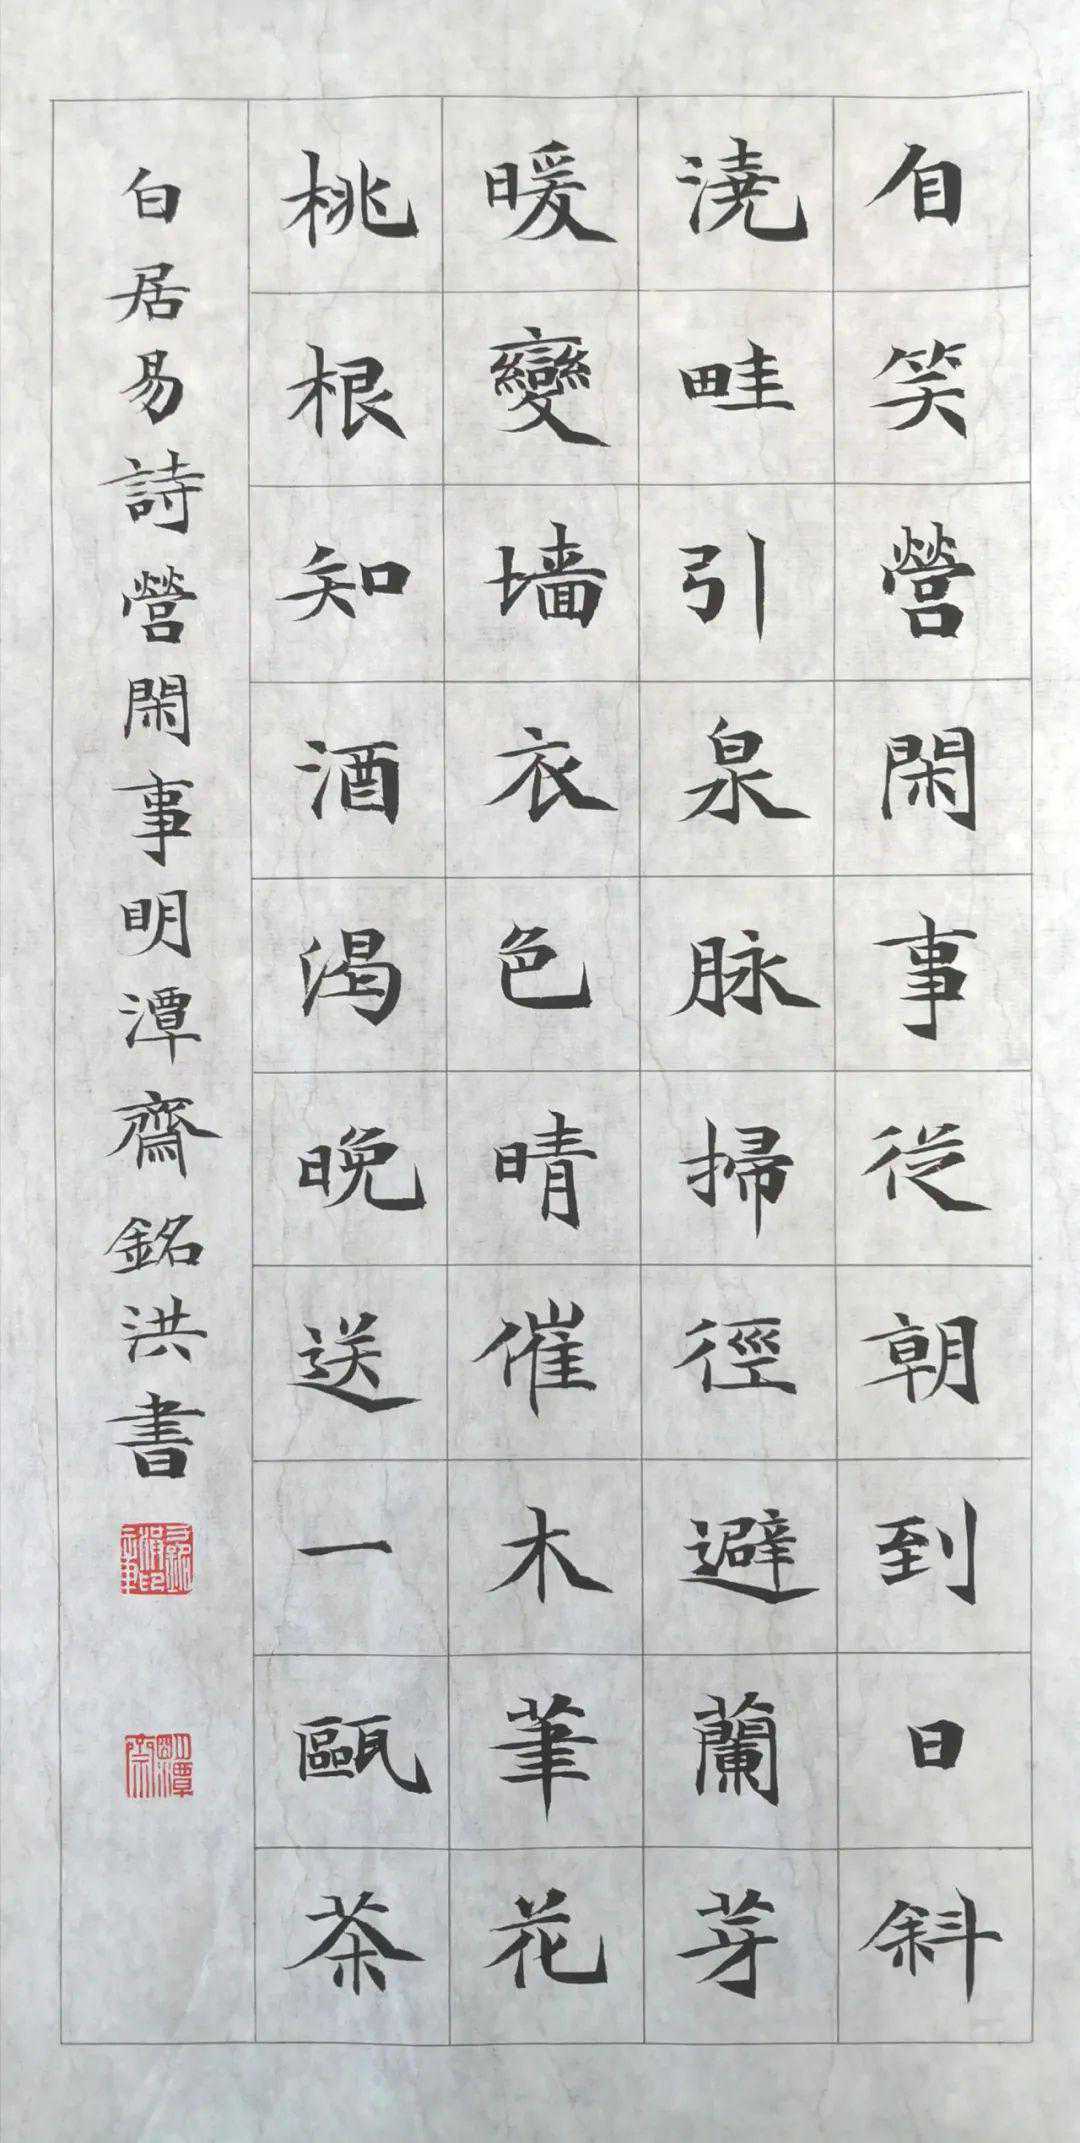 自笑營閑事從朝到日斜
澆畦引泉脉掃徑避蘭芽
暖變墙衣色晴催木筆花
桃根知酒渴晚送一甌茶
白居易詩營閑事明潭齋銘洪書
明潭齋